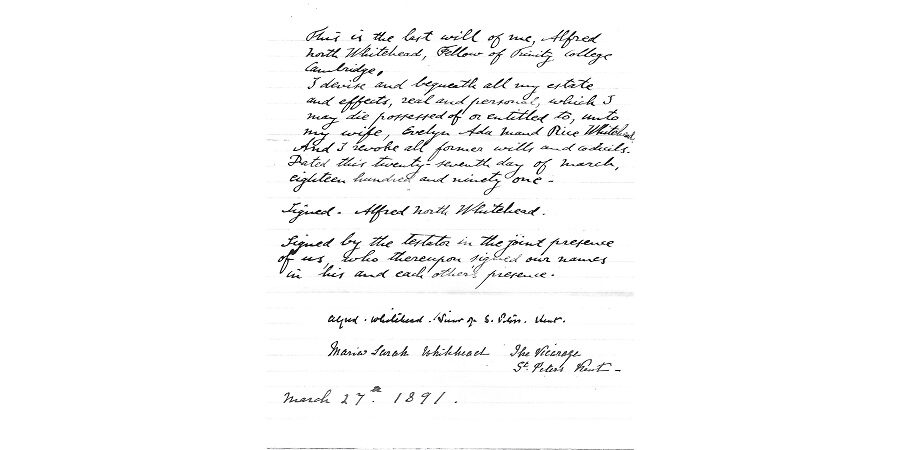 This is the last will of me, Alfred
North Whitehead, Fellow of Trinity College
Cambridge.
I devise and bequeath all my estate
and effects, real and personal, which I
may die possessed of or entitled to, unto
my wife, Evelyn Ada Maud Rice Whitehead
And I revoke all former wills and codicils.
Dated this twenty-seventh day of March,
eighteen hundred and ninety one -
Signed - Alfred North Whitehead.
Signed by the testator in the joint presence
of us, who thereupon signed our names
in his and each other's presence.
Alfred. Whitehead. Vicar of S. Peters. Kent.
Maria Sarah Whitehead The Vicarage
St. Peters Kent -
March 27th. 1891.